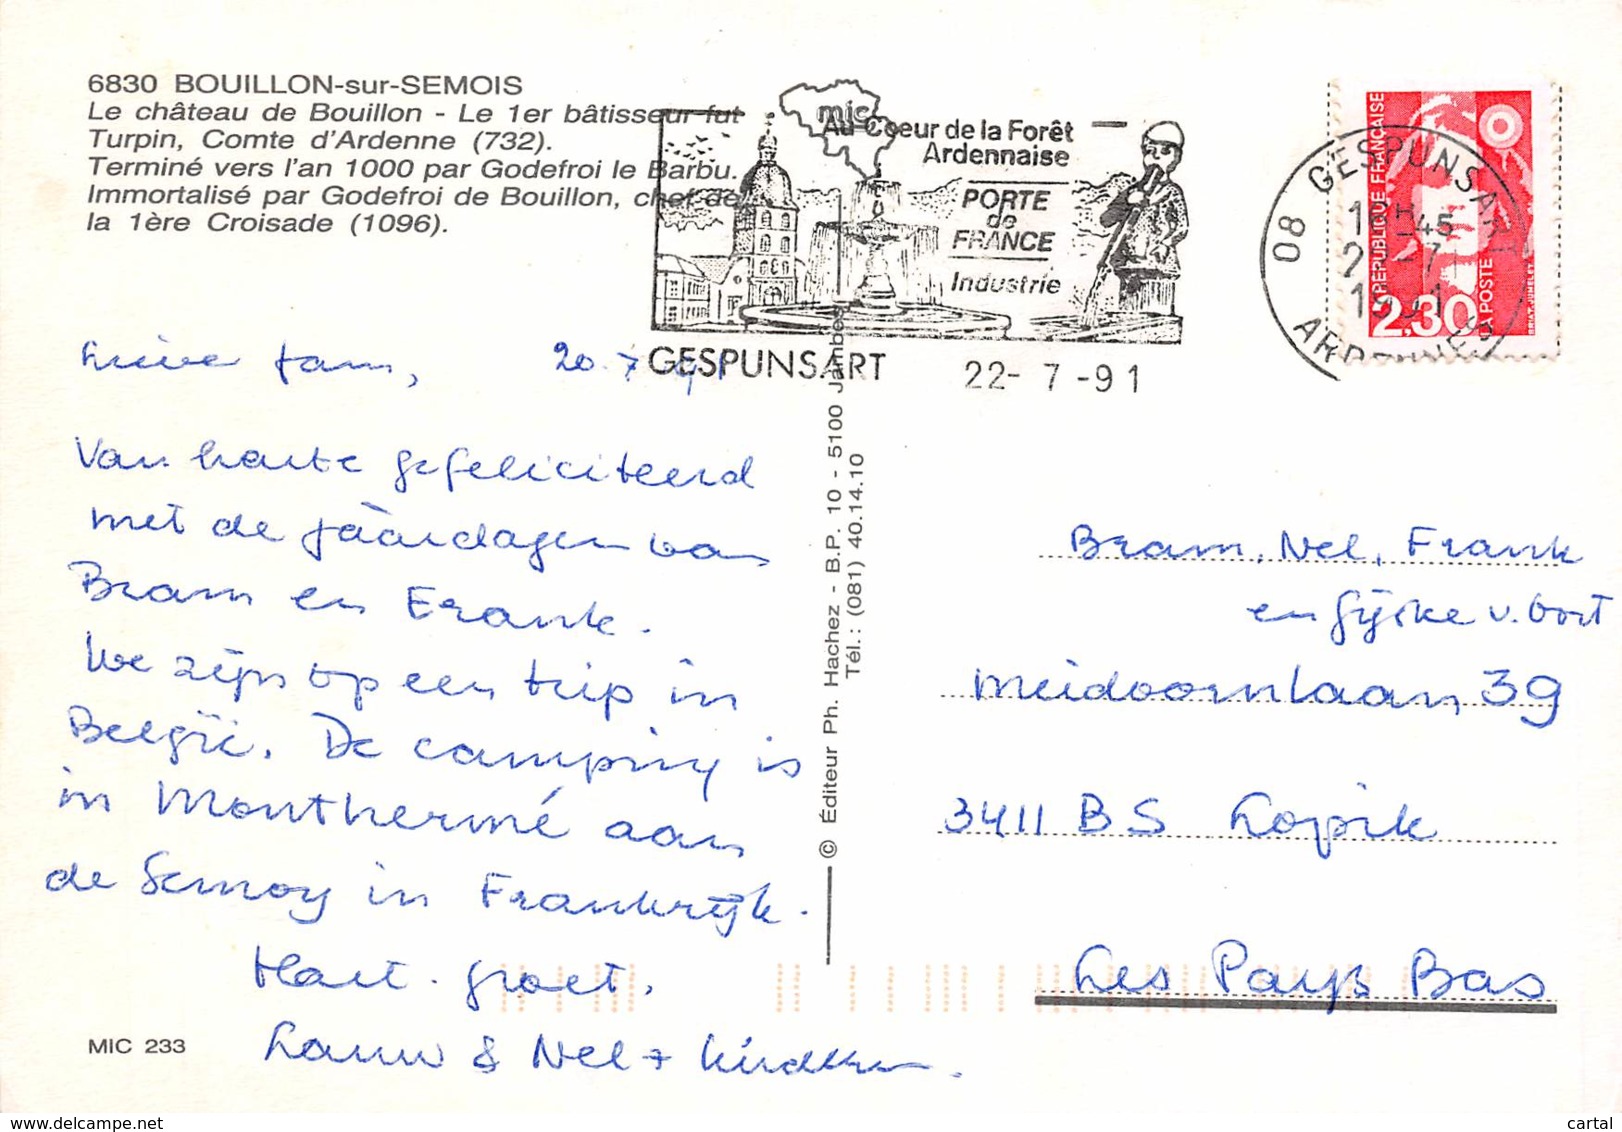 6830 BOUILLON-sur-SEMOIS
Le château de Bouillon - Le 1er bâtisseur fut
Turpin, Comte d'Ardenne (732).
Terminé vers l'an 1000 par Godefroi le Barbu.
Immortalisé par Godefroi de Bouillon, chef de
la 1ère Croisade (1096).
mic
Au Coeur de la Forêt
Ardennaise
PORTE
de
FRANCE
Industrie
GESPUNSART 22-7-91
08 GESPUNSART
ARDENNES
RÉPUBLIQUE FRANÇAISE
2,30
LA POSTE
Lieve fam, 20.7.91
Van harte gefeliciteerd
met de jáárdagen van
Bram en Frank.
We zijn op een trip in
België. De camping is
in Monthermé aan
de Semoy in Frankrijk.
Hart. groet.
Lauw & Nel + kinderen.
MIC 233
© Éditeur Ph. Hachez - B.P. 10 - 5100 Jambes
Tél.: (081) 40.14.10
Bram, Nel, Frank
en Gijske v. Oort
Meidoornlaan 39
3411 BS Lopik
Les Pays Bas
cartal